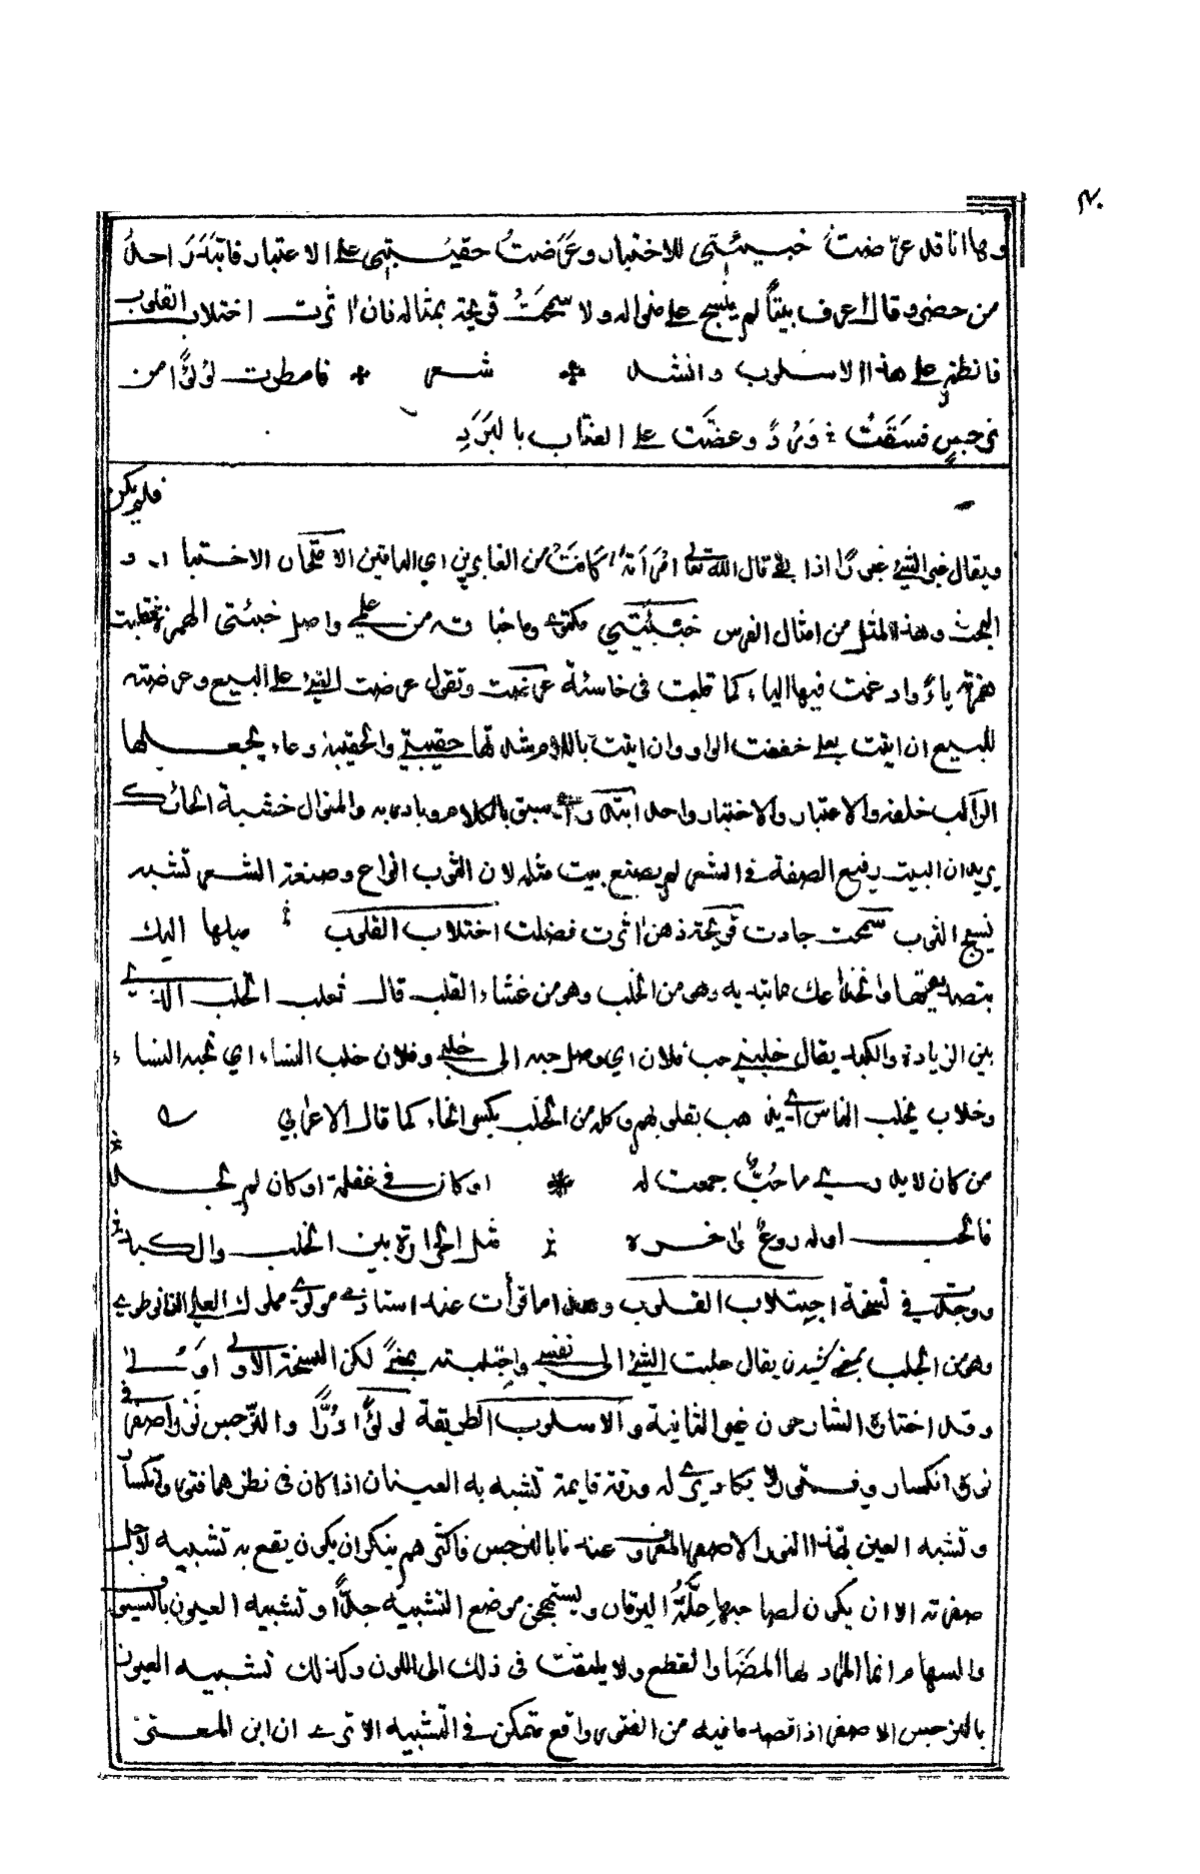 ٣٠
وها انا قد عرّضتُ خبيئتي للاختبار وعَرَضتُ حقيبتي على الاعتبار فابتدَرَ احدُ
من حضر وقال اعرف بيتًا لم ينسج على منواله ولا سمحَتْ قريحة بمثاله فان اٰثرت اختلاب القلوب
فانظم على هذا الاسلوب وانشد شعر فامطرت لؤلؤًا من
نرجسٍ فسقَت وَردًا وعضّت على العناب بالبَرَدِ
فلم يكن
ويقال غبر الشيئ غبورًا اذا بقي قال الله تعالى امْرَاَتَهٗ كَانَتْ من الغابرين اي الباقين الامتحان الاختبار و
البحث وهذا المثل من امثال الفرس خبيئتي مكتومي وما خبأته من علمي واصل خبيئتي الهمزة فقلبت
همزته ياءً وادغمت فيها الياء كما قلبت في خاسئة عرضت وتقول عرضت الشيئ على البيع وعرضته
للبيع ان اتيت بعلى خففت الراء وان اتيت باللام شددتها حقيبتي والحقيبة وعاء يجعلها
الراكب خلفه والاعتبار والاختبار واحد ابتدر اي سبق بالكلام وبادر به والمنوال خشبة الحائك
يريد ان البيت رفيع الصفة في الشعر لم يصنع بيت مثله لان الثوب انواع وصنعة الشعر تشبه
نسج الثوب سمحت جادت قريحة ذهن اٰثرت فضلت اختلاب القلوب ميلها اليك
به وهو من الخلب وهو من غشاء القلب قال ثعلب الخلب الذي
بين الزيادة والكبد يقال خلبني حب فلان اي وصل حبه الى خلبي وفلان خلب النساء اي تحبه النساء
وخلاب يخلب الناس اي يذهب بقلوبهم وكله من الخلب بكسر الخاء كما قال الاعرابي
من كان لا يدري ما حُبٌّ جمعت له او كان في غفلة او كان لم يجد
فالحب اوله روعٌ واٰخره مثل الحرارة بين الخلب والكبد
ووجدت في نسخة اجتلاب القلوب وهذا ما قرأت عند استاذي مولوي مملوك العلي النانوتوي
وهو من الجلب بمعنى كشيدن يقال جلبت الشيئ الى نفسي واجتلبته بمعنًى لكن النسخة الاولى اولى
وقد اختاره الشارحون غير الثانية والاسلوب الطريقة لؤلؤًا دُرًّا والنرجس نور اصفر في
نوره انكسار وفتور لا يكاد يرى له ورقة قايمة تشبه به العينان اذا كان في نظرهما فتور وانكسار
وتشبه العين بهذا النور الاصفر المعروف عندنا بالنرجس فاكثرهم ينكر ان يكون يقع به تشبيه لاجل
صفرته الا ان يكون لصاحبها عِلَّةُ اليرقان ويستهجن موضع التشبيه جدًّا وتشبيه العيون بالسيوف
والسهام انما المراد لها المضا والقطع ولا يلتفت في ذلك الى اللون وكذلك تشبيه العيون
بالنرجس الاصفر اذا قصد ما فيه من الفتور واقع متمكن في التشبيه الا ترى ان ابن المعتز